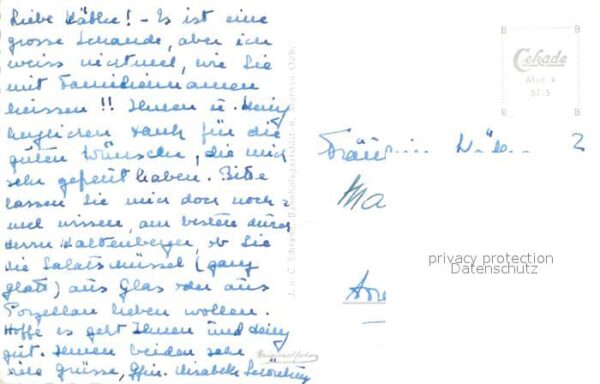 Liebe Käthe! - Es ist eine
grosse Schande, aber ich
weiss nicht mal, wie Sie
mit Familiennamen
heissen!! Ihnen u. Heinz
herzlichen Dank für die
guten Wünsche, die mich
sehr gefreut haben. Bitte
lassen Sie mich doch noch
mal wissen, am besten durch
Herrn Kaltenberger, ob Sie
die Salatschüssel (ganz
glatt) aus Glas oder aus
Porzellan haben wollen.
Hoffe es geht Ihnen und Heinz
gut. Ihnen beiden sehr
viele Grüsse, Elisabeth
Originalfoto
Cekade
B B
R B
Fräulein
Ma
privacy protection
Datenschutz